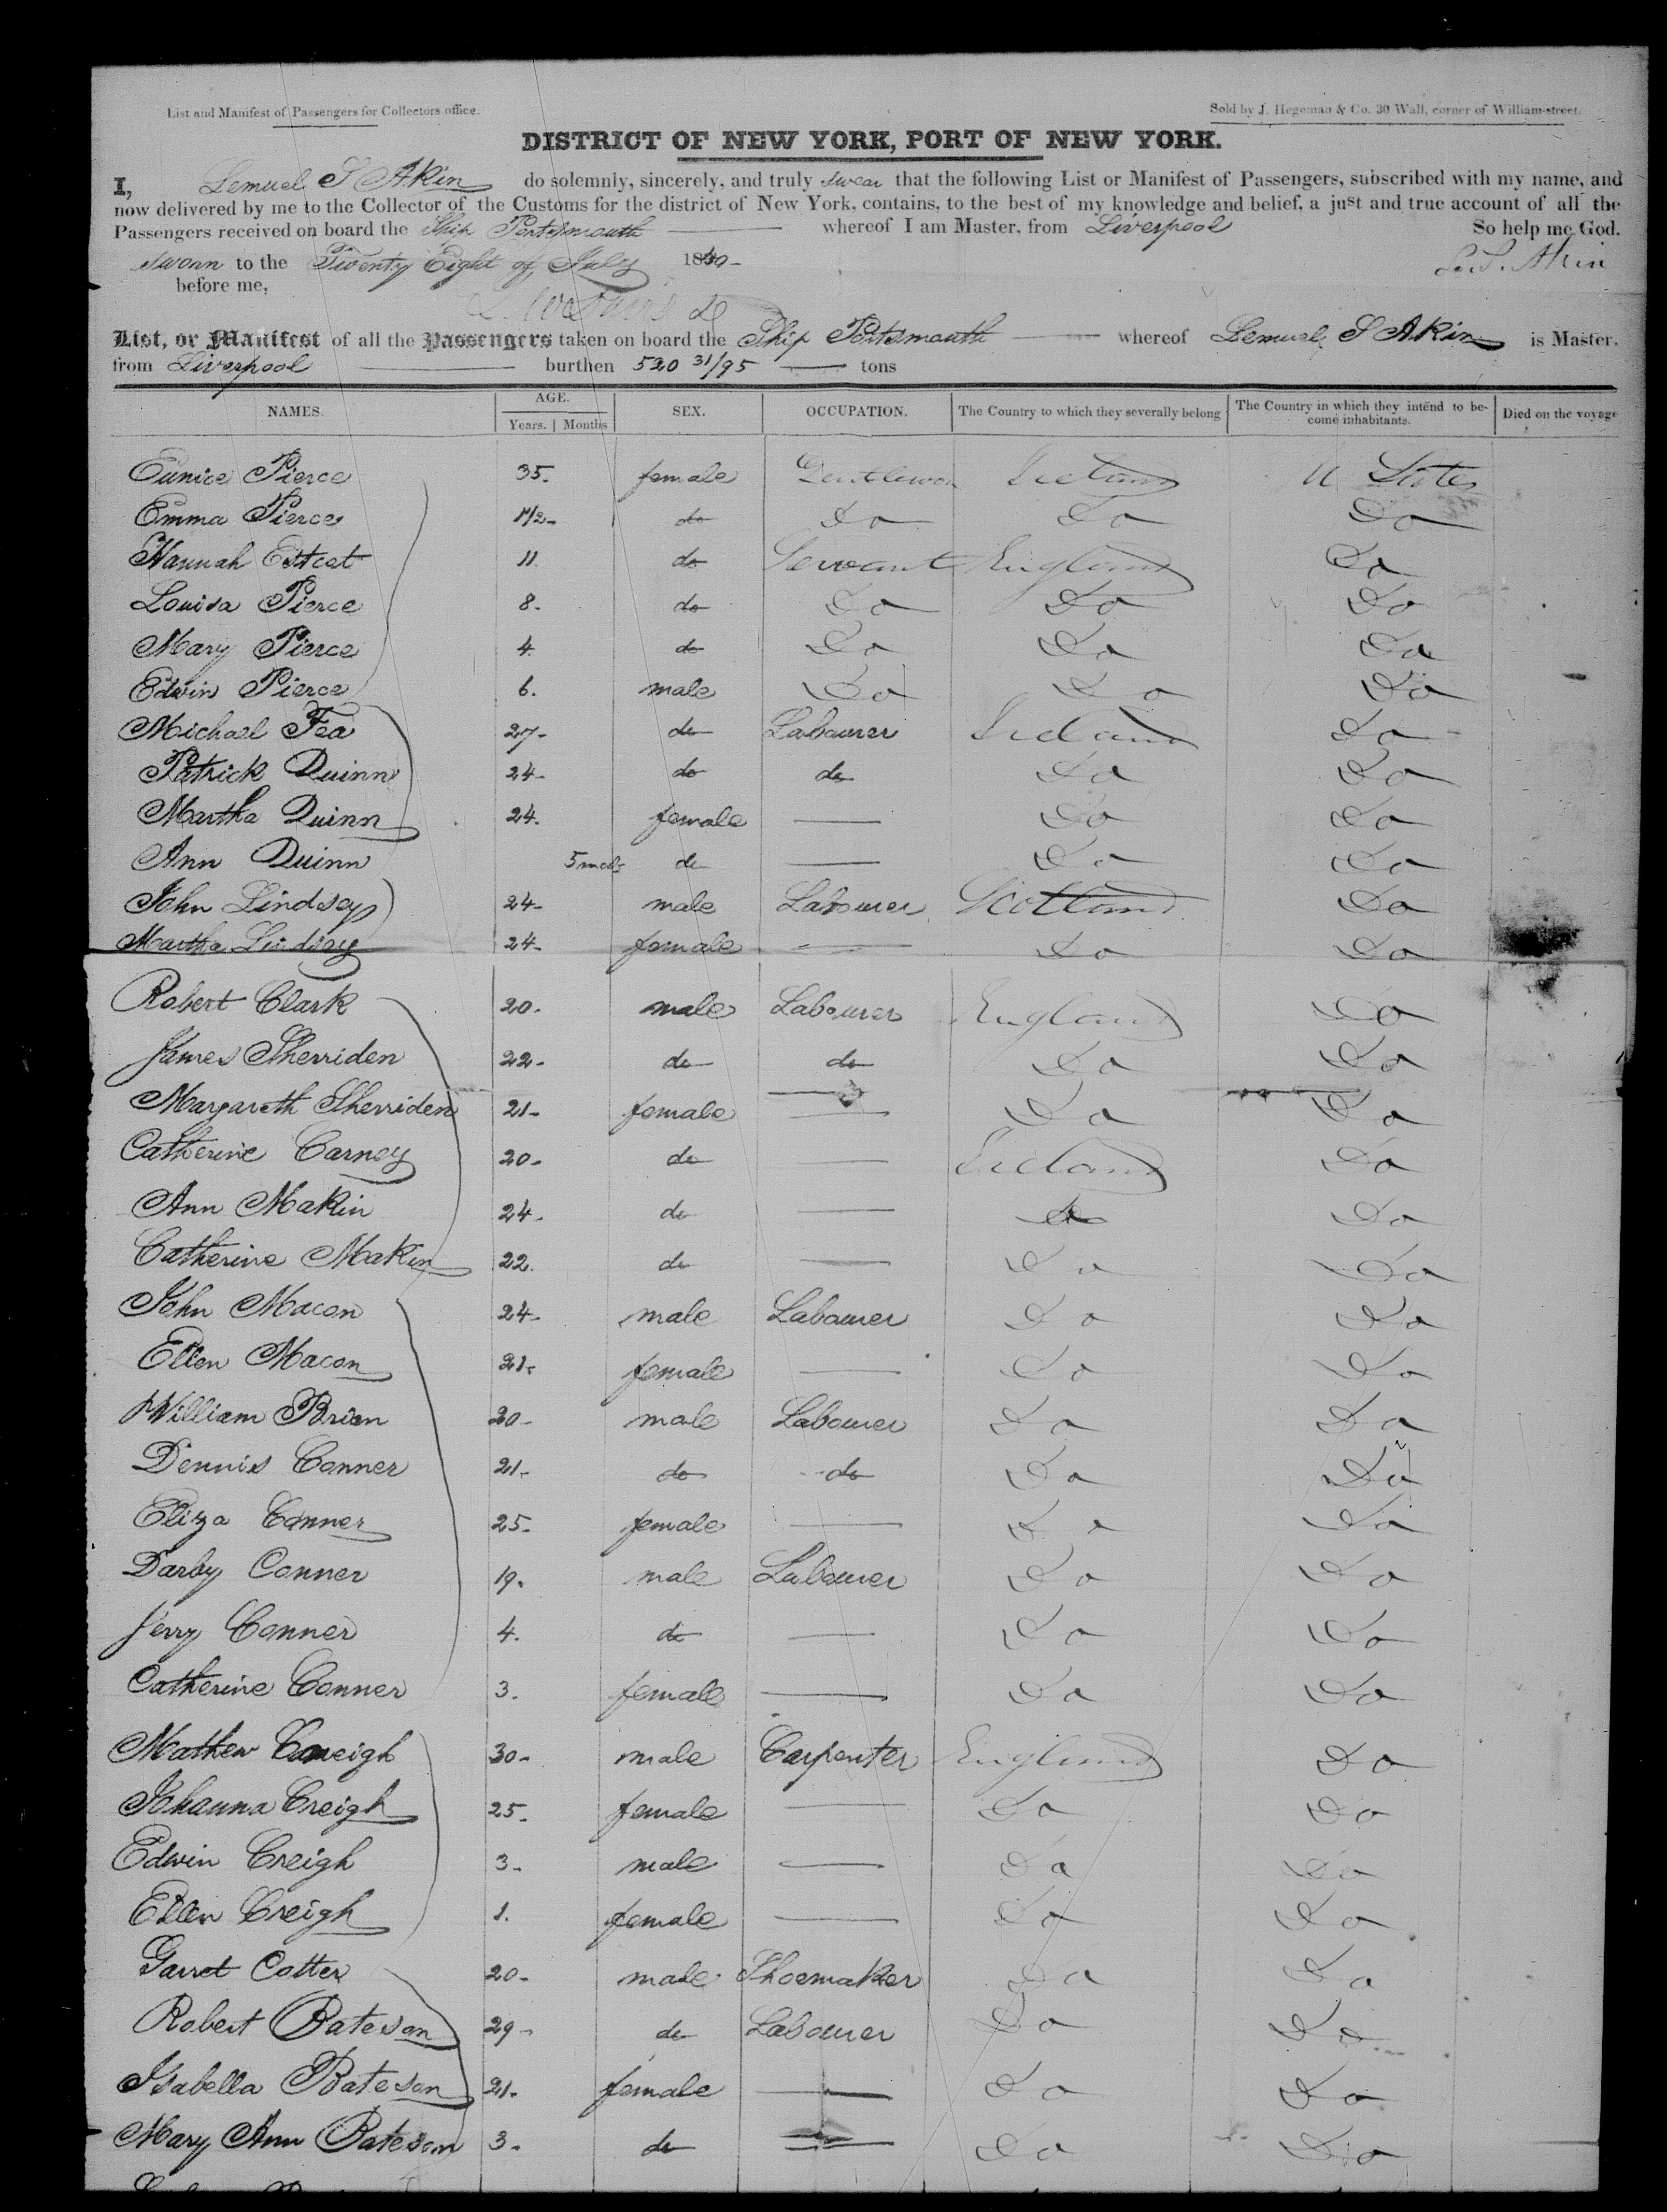 List and Manifest of Passengers for Collectors office.
Sold by J. Hegeman & Co. 30 Wall, corner of William-street.
DISTRICT OF NEW YORK, PORT OF NEW YORK.
I, Lemuel S Akin do solemnly, sincerely, and truly swear that the following List or Manifest of Passengers, subscribed with my name, and
now delivered by me to the Collector of the Customs for the district of New York, contains, to the best of my knowledge and belief, a just and true account of all the
Passengers received on board the Ship Portsmouth whereof I am Master, from Liverpool So help me God.
Sworn to the Twenty Eight of July 1840 L. S. Akin
before me,
List, or Manifest of all the Passengers taken on board the Ship Portsmouth whereof Lemuel S Akin is Master.
from Liverpool burthen 520 31/95 tons
NAMES. AGE. SEX. OCCUPATION. The Country to which they severally belong The Country in which they intend to be- Died on the voyage
Years. Months come inhabitants.
Eunice Pierce 35. female Gentlewon Ireland U States
Emma Pierce 1 1/2 do Do Do Do
Hannah 11. do Servant England Do
Louisa Pierce 8. do Do Do Do
Mary Pierce 4. do Do Do Do
Edwin Pierce 6. male Do Do Do
Michael Fea 27 do Labourer Ireland Do
Patrick Quinn 24 do do Do Do
Martha Quinn 24. female — Do Do
Ann Quinn 5 mots do — Do Do
John Lindsey 24 male Labourer Scotland Do
Martha Lindsey 24 female — Do Do
Robert Clark 20 male Labourer England Do
James Sherriden 22 do do Do Do
Margareth Sherriden 21 female — Do Do
Catherine Carney 20 do — Ireland Do
Ann Makin 24 do — do Do
Catherine Makin 22. do — Do Do
John Macon 24 male Labourer Do Do
Ellen Macon 21 female — Do Do
William Brien 20 male Labourer Do Do
Dennis Conner 21 do do Do Do
Eliza Conner 25 female — Do Do
Darby Conner 19. male Labourer Do Do
Jerry Conner 4. do — Do Do
Catherine Conner 3. female — Do Do
Mathew Creigh 30 male Carpenter England Do
Johanna Creigh 25 female — Do Do
Edwin Creigh 3 male — Do Do
Ellen Creigh 1. female — Do Do
Garret Cotter 20 male Shoemaker Do Do
Robert Bateson 29 do Labourer Do Do
Isabella Bateson 21 female — Do Do
Mary Ann Bateson 3 do — Do Do